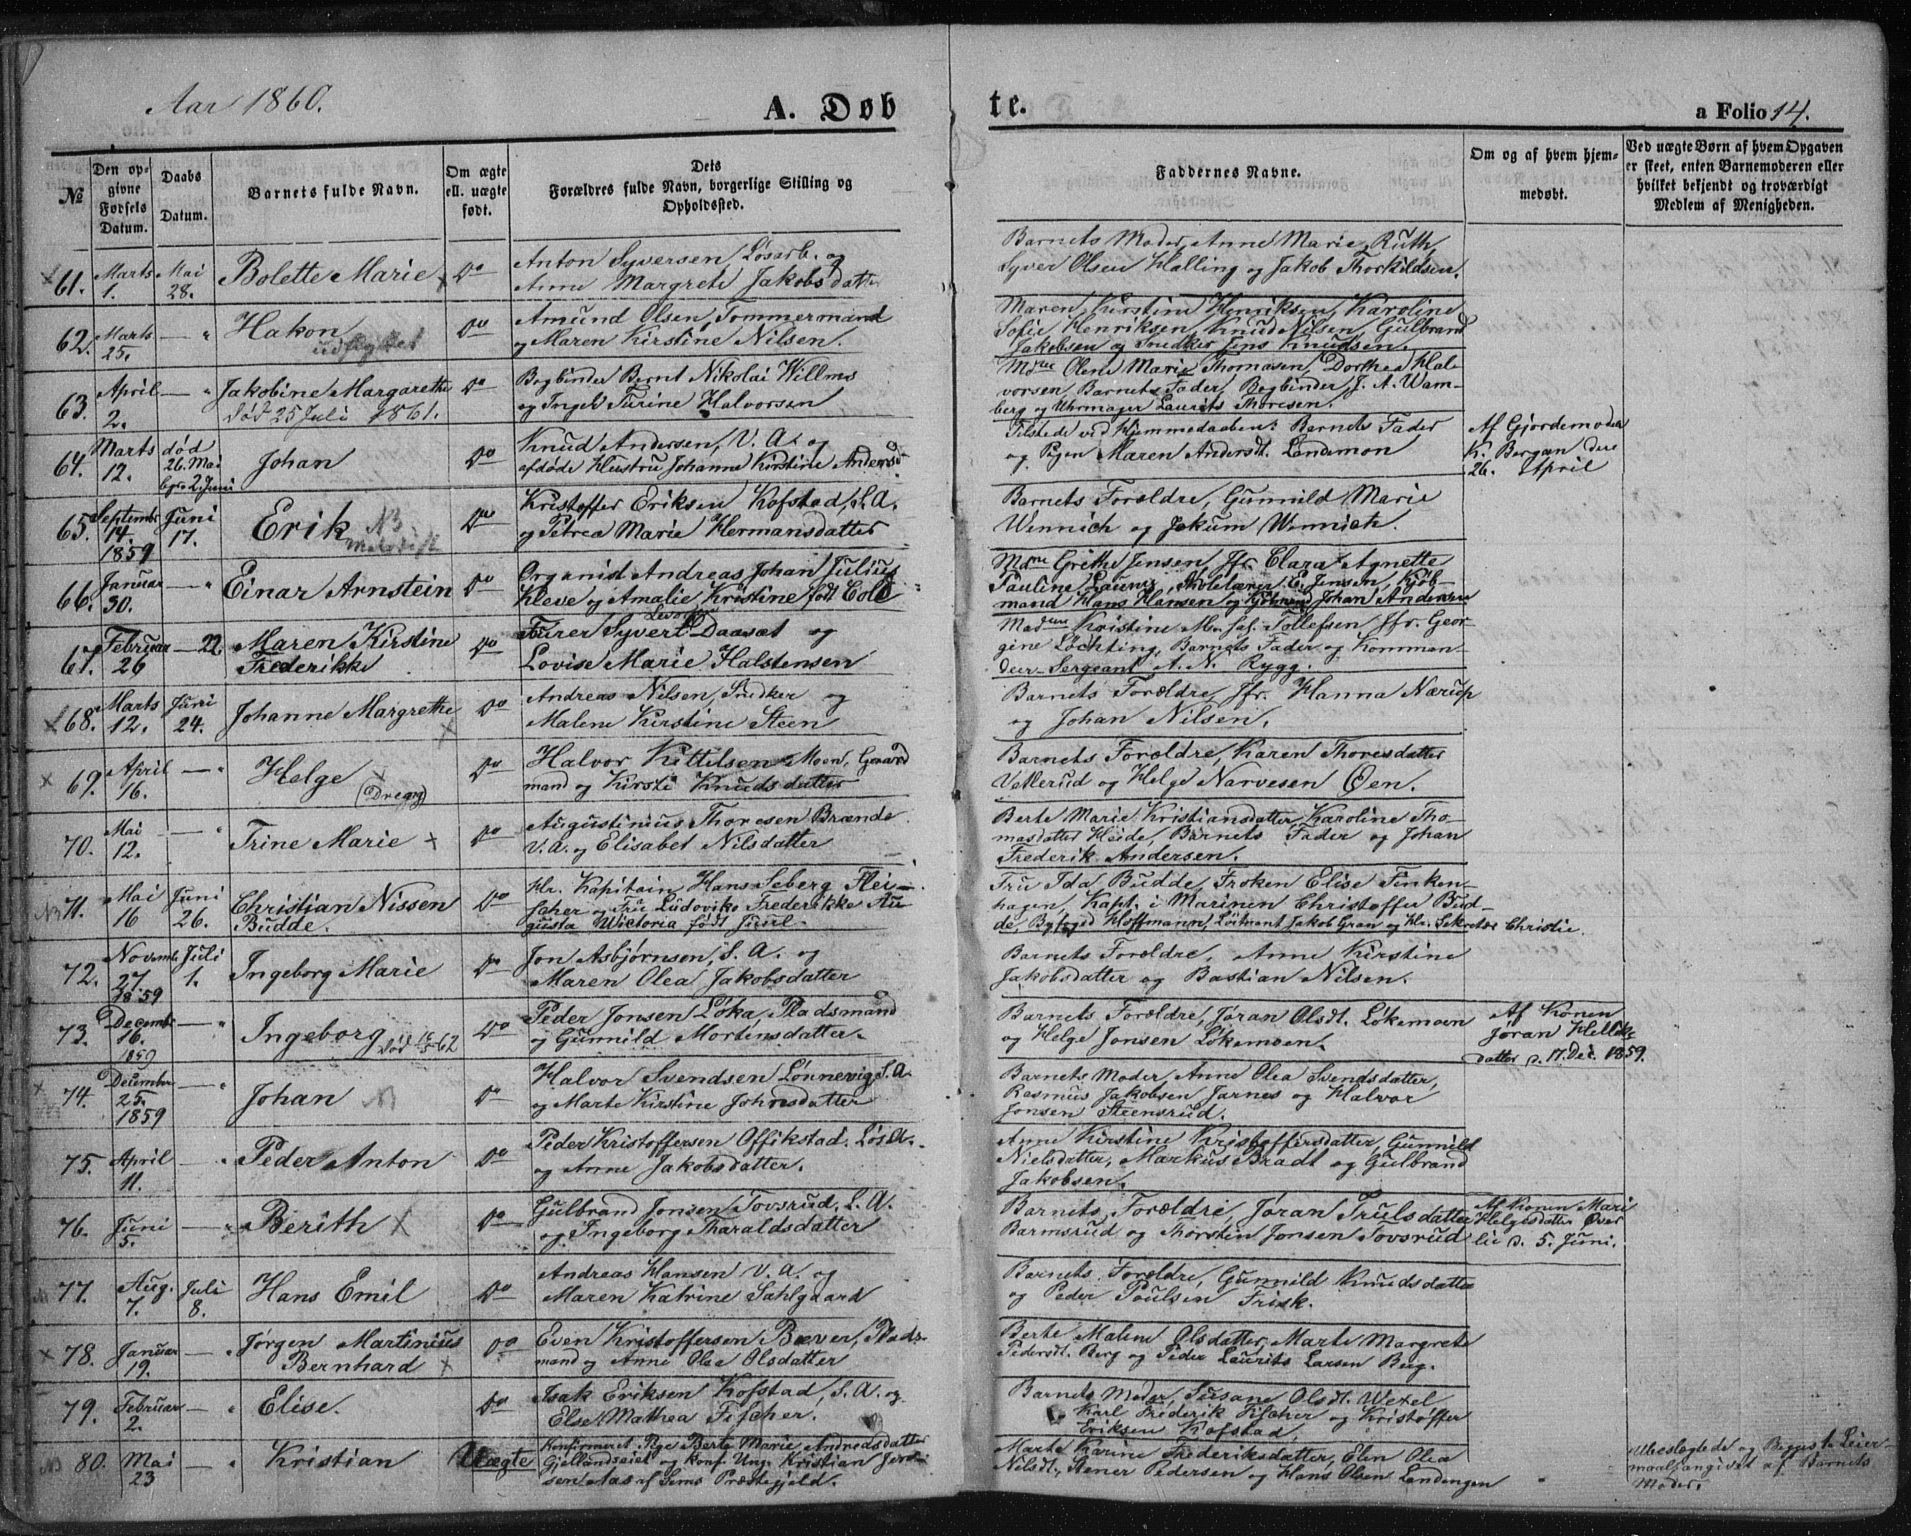 Aar 1860.
A. Døbte.
a Folio 14.
№
Den opgivne Fødsels Datum.
Daabs Datum.
Barnets fulde Navn.
Om ægte ell. uægte født.
Dets Forældres fulde Navn, borgerlige Stilling og Opholdssted.
Faddernes Navne.
Om og af hvem hjemmedøbt.
Ved uægte Børn af hvem Opgaven er skeet, enten Barnemoderen eller hvilket bekjendt og troværdigt Medlem af Menigheden.
61. Marts 1. Mai 28. Bolette Marie Do
Anton Syversen Løsarb. og
Anne Margrete Jakobsdatter
Barnets Moder, Anne Marie Ruth,
Syver Olsen Halling og Jakob Thorkildsen.
62. Marts 25. — " Hakon udflyttet Do
Amund Olsen Tømmermand
og Maren Kirstine Nilsen.
Maren Kirstine Henriksen, Karoline
Sofie Henriksen, Knud Nilsen, Gulbrand
Jakobsen og Snedker Jens Knudsen.
63. April 2. — " Jakobine Margarethe Do
død 25 Juli 1861.
Bogbinder Bernt Nikolai Willms
og Ingeb. Turine Halvorsen
Mdme Olene Marie Thomasen, Dorthea Hal-
vorsen, Barnets Fader, Bogbinder J. A. Wam-
berg og Uhrmager Laurits Thoresen.
64. Marts 12. død 26. Mai begr. 2. Juni Johan Do
Knud Andersen, V. A. og
afdøde Hustru Johanne Kirstine Andersd.
Tilstede ved Hjemmedaaben: Barnets Fader
og Pigen Maren Andersdt. Landemon
Af Gjordemoder
K. Bergan den
26. April
65. Septembr 14. 1859 Juni 17. Erik NB Do
Kristoffer Eriksen Kofstad, S. A.
og Petrea Marie Hermansdatter
Barnets Forældre, Gunnild Marie
Wennich og Jakum Wennich.
66. Januar 30. — " Einar Arnstein Do
Organist Andreas Johan Julius
Kleve og Amalie Kristine født Cold
Mdme Grithe Jensen, Jfr. Clara Agnette
Pauline Launiz, Skolelærer E. Jensen, Kjøb-
mand Hans Hansen og Kjøbmand Johan Andersen
67. Februar 26 — 22. Maren Kirstine
Frederikke Do
Furer Syvert Daasæt og
Lovise Marie Halstensen
Madme Kristine M. Tollefsen Jfr. Geor-
gine Løchting, Barnets Fader og Komman-
deur-Sergeant A. N. Rygg.
68. Marts 12. Juni 24. Johanne Margrethe Do
Andreas Nilsen, Snedker og
Malene Kirstine Steen
Barnets Forældre, Jfr. Hanna Nærup
og Johan Nilsen.
69. April 16. — " Helge Do
Halvor Kittelsen Moen, Gaard-
mand og Kirsti Knudsdatter
Barnets Forældre, Karen Thoresdatter
Vetlerud og Helge Narvesen Øen.
70. Mai 12. — " Trine Marie Do
Augustinius Thoresen Brænde
V. A. og Elisabet Nilsdatter
Berte Marie Kristiansdatter, Karoline Tho-
masdatter Heide, Barnets Fader og Johan
Frederik Andersen.
71. Mai 16 Juni 26. Christian Nissen
Budde. Do
Hr. Kapitain Hans Seberg Flei-
scher og Fru Ludovike Frederikke Au-
gusta Viktoria født Juul
Fru Ida Budde, Frøken Elise Finken-
hagen, Kapt. i Marinen Christoffer Bud-
de, Byfoged Hoffmann, Løitnant Jakob Gran og Hr. Sekretær Christie.
72. Novemb. 27. 1859 Juli 1. Ingeborg Marie Do
Jon Asbjørnsen, S. A. og
Maren Olea Jakobsdatter
Barnets Forældre, Anne Kirstine
Jakobsdatter og Bastian Nilsen.
73. Decembr 16. 1859 — " Ingeborg Do
Peder Jonsen Løka, Pladsmand
og Gunnild Mortensdatter.
Barnets Forældre, Jøran Olsdt. Løkemoen
og Helge Jonsen Løkemoen.
Af Konen
Jøran Helleks-
datter d. 17. Dec. 1859.
74. December 25. 1859 — " Johan Do
Halvor Svendsen Lønnevig, S. A.
og Marte Kirstine Johnsdatter
Barnets Moder Anne Olea Svendsdatter,
Rasmus Jakobsen Jarnes og Halvor
Jonsen Steensrud.
75. April 11. — " Peder Anton Do
Peder Kristoffersen Offikstad. Løs A.
og Anne Jakobsdatter.
Anne Kirstine Kristoffersdatter, Gunnild
Nielsdatter, Markus Bradt og Gulbrand
Jakobsen.
76. Juni 5. — " Berith Do
Gulbrand Jonsen Tovsrud, L. A.
og Ingeborg Haraldsdatter
Barnets Forældre, Jøran Trulsdatter
Barmsrud og Thorstin Jonsen Tovsrud
Af Konen Mari
Helgesdatter Øver
lie d. 5. Juni.
77. Aug. 7. Juli 8. Hans Emil Do
Andreas Hansen V. A. og
Maren Katrine Sahlgaard
Barnets Forældre, Gunnild Knudsdatter
og Peder Poulsen Frisk.
78. Januar 19. — " Jørgen Martinius
Bernhard Do
Even Kristoffersen Bæver, Plads-
mand og Anne Olea Olsdatter
Berte Malene Olsdatter, Marte Margrete
Pedersdt. Berg og Peder Laurits Larsen Berg.
79. Februar 2. — " Elise. Do
Isak Eriksen Kofstad, S. A. og
Else Mathea Fischer.
Barnets Moder, Susane Olsdt. Wexel
Karl Frederik Fischer og Kristoffer
Eriksen Kofstad.
80. Mai 23 — " Kristian Uægte
Konfirmeret Pige Berte Marie Andreasdatter
Gjellandseiet og konf. Ung. Kristian Jord-
sen Aas af Sems Præstegjeld.
Marte Karine Frederiksdatter, Elen Olea
Nilsdt., Stener Pedersen og Hans Olsen Landengen
Ubeslegtede og Begges 1ste Leier-
maal, angivet af Barnets
Moder.